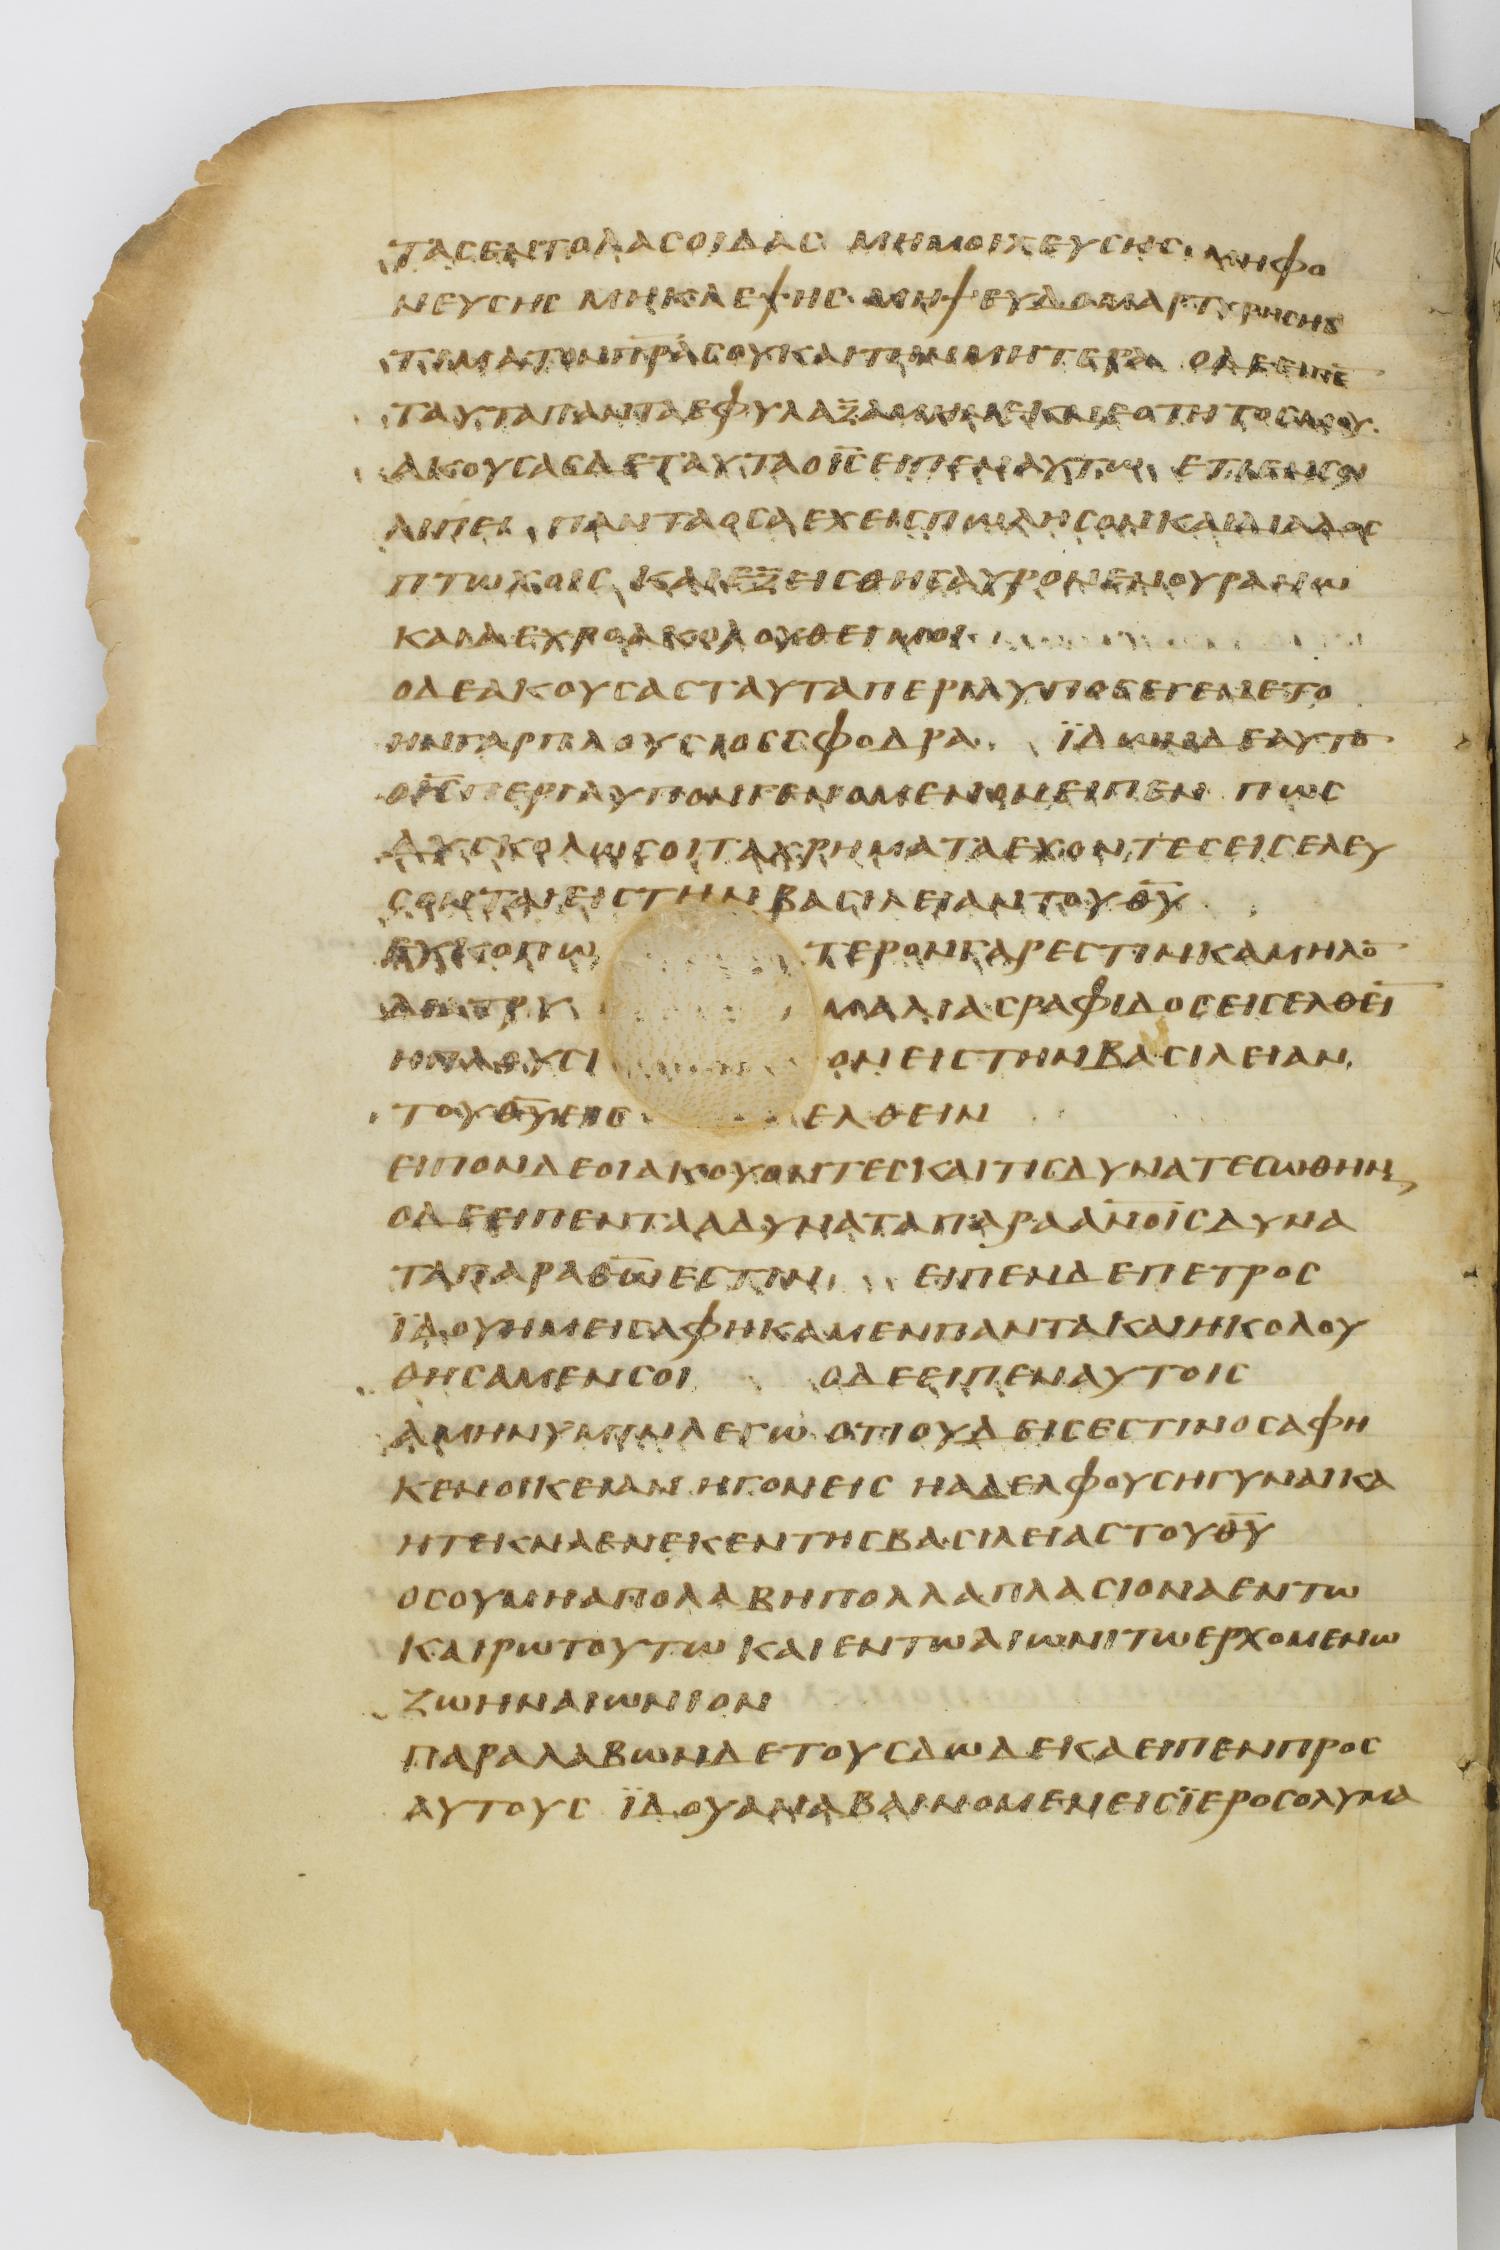 ταςεντολαςοιδας μημοιχευςης μηφο
νευςης μηκλεψης μηψευδομαρτυρηςης
τιματονπ̅ρ̅α̅ςουκαιτηνμητερα οδεειπε̅
ταυταπανταεφυλαξαμηνεκνεοτητοςμου
ακουςαςδεταυταοι̅ς̅ειπεναυτω ετιενςοι
λιπει πανταοςαεχειςπωληςονκαιδιαδος
πτωχοις καιεξειςθηςαυρονενουρανω
καιδευροακολουθειμοι
οδεακουςαςταυταπεριλυποςεγενετο
ηνγαρπλουςιοςςφοδρα ϊδωνδεαυτο̅
οι̅ς̅περιλυπονγενομενονειπεν πως
δυςκολωςοιταχρηματαεχοντεςειςελευ
ςονταιειςτηνβαςιλειαντουθ̅υ̅
ευκοπω τερονγαρεςτινκαμηλο̅
διατρυ μαλιαςραφιδοςειςελθει̅
ηπλουςι ονειςτηνβαςιλειαν
τουθ̅υ̅εις ελθειν
ειπονδεοιακουοντεςκαιτιςδυνατεςωθηναι
οδεειπεντααδυναταπαραα̅ν̅ο̅ι̅ςδυνα
ταπαραθ̅ω̅εςτιν ειπενδεπετρος
ϊδουημειςαφηκαμενπαντακαιηκολου
θηςαμενςοι οδεειπεναυτοις
αμηνυμινλεγωοτιουδειςεςτινοςαφη
κενοικειαν ηγονεις ηαδελφουςηγυναικα
ητεκναενεκεντηςβαςιλειαςτουθ̅υ̅
οςουμηαπολαβηπολλαπλαςιοναεντω
καιρωτουτω καιεντωαιωνιτωερχομενω
ζωηναιωνιον
παραλαβωνδετουςδωδεκαειπενπρος
αυτους ϊδουαναβαινομενειςϊεροςολυμα